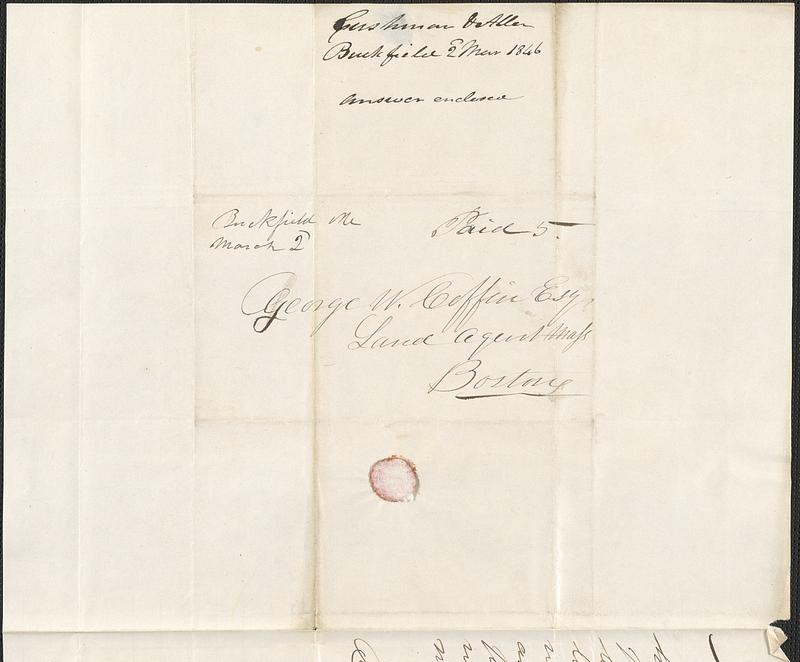 Cushman & Allen
Buckfield 2d Mar 1846
answer enclosed
Buckfield Me
March 2d
Paid 5
George W. Coffin Esq,
Land Agent Mass
Boston